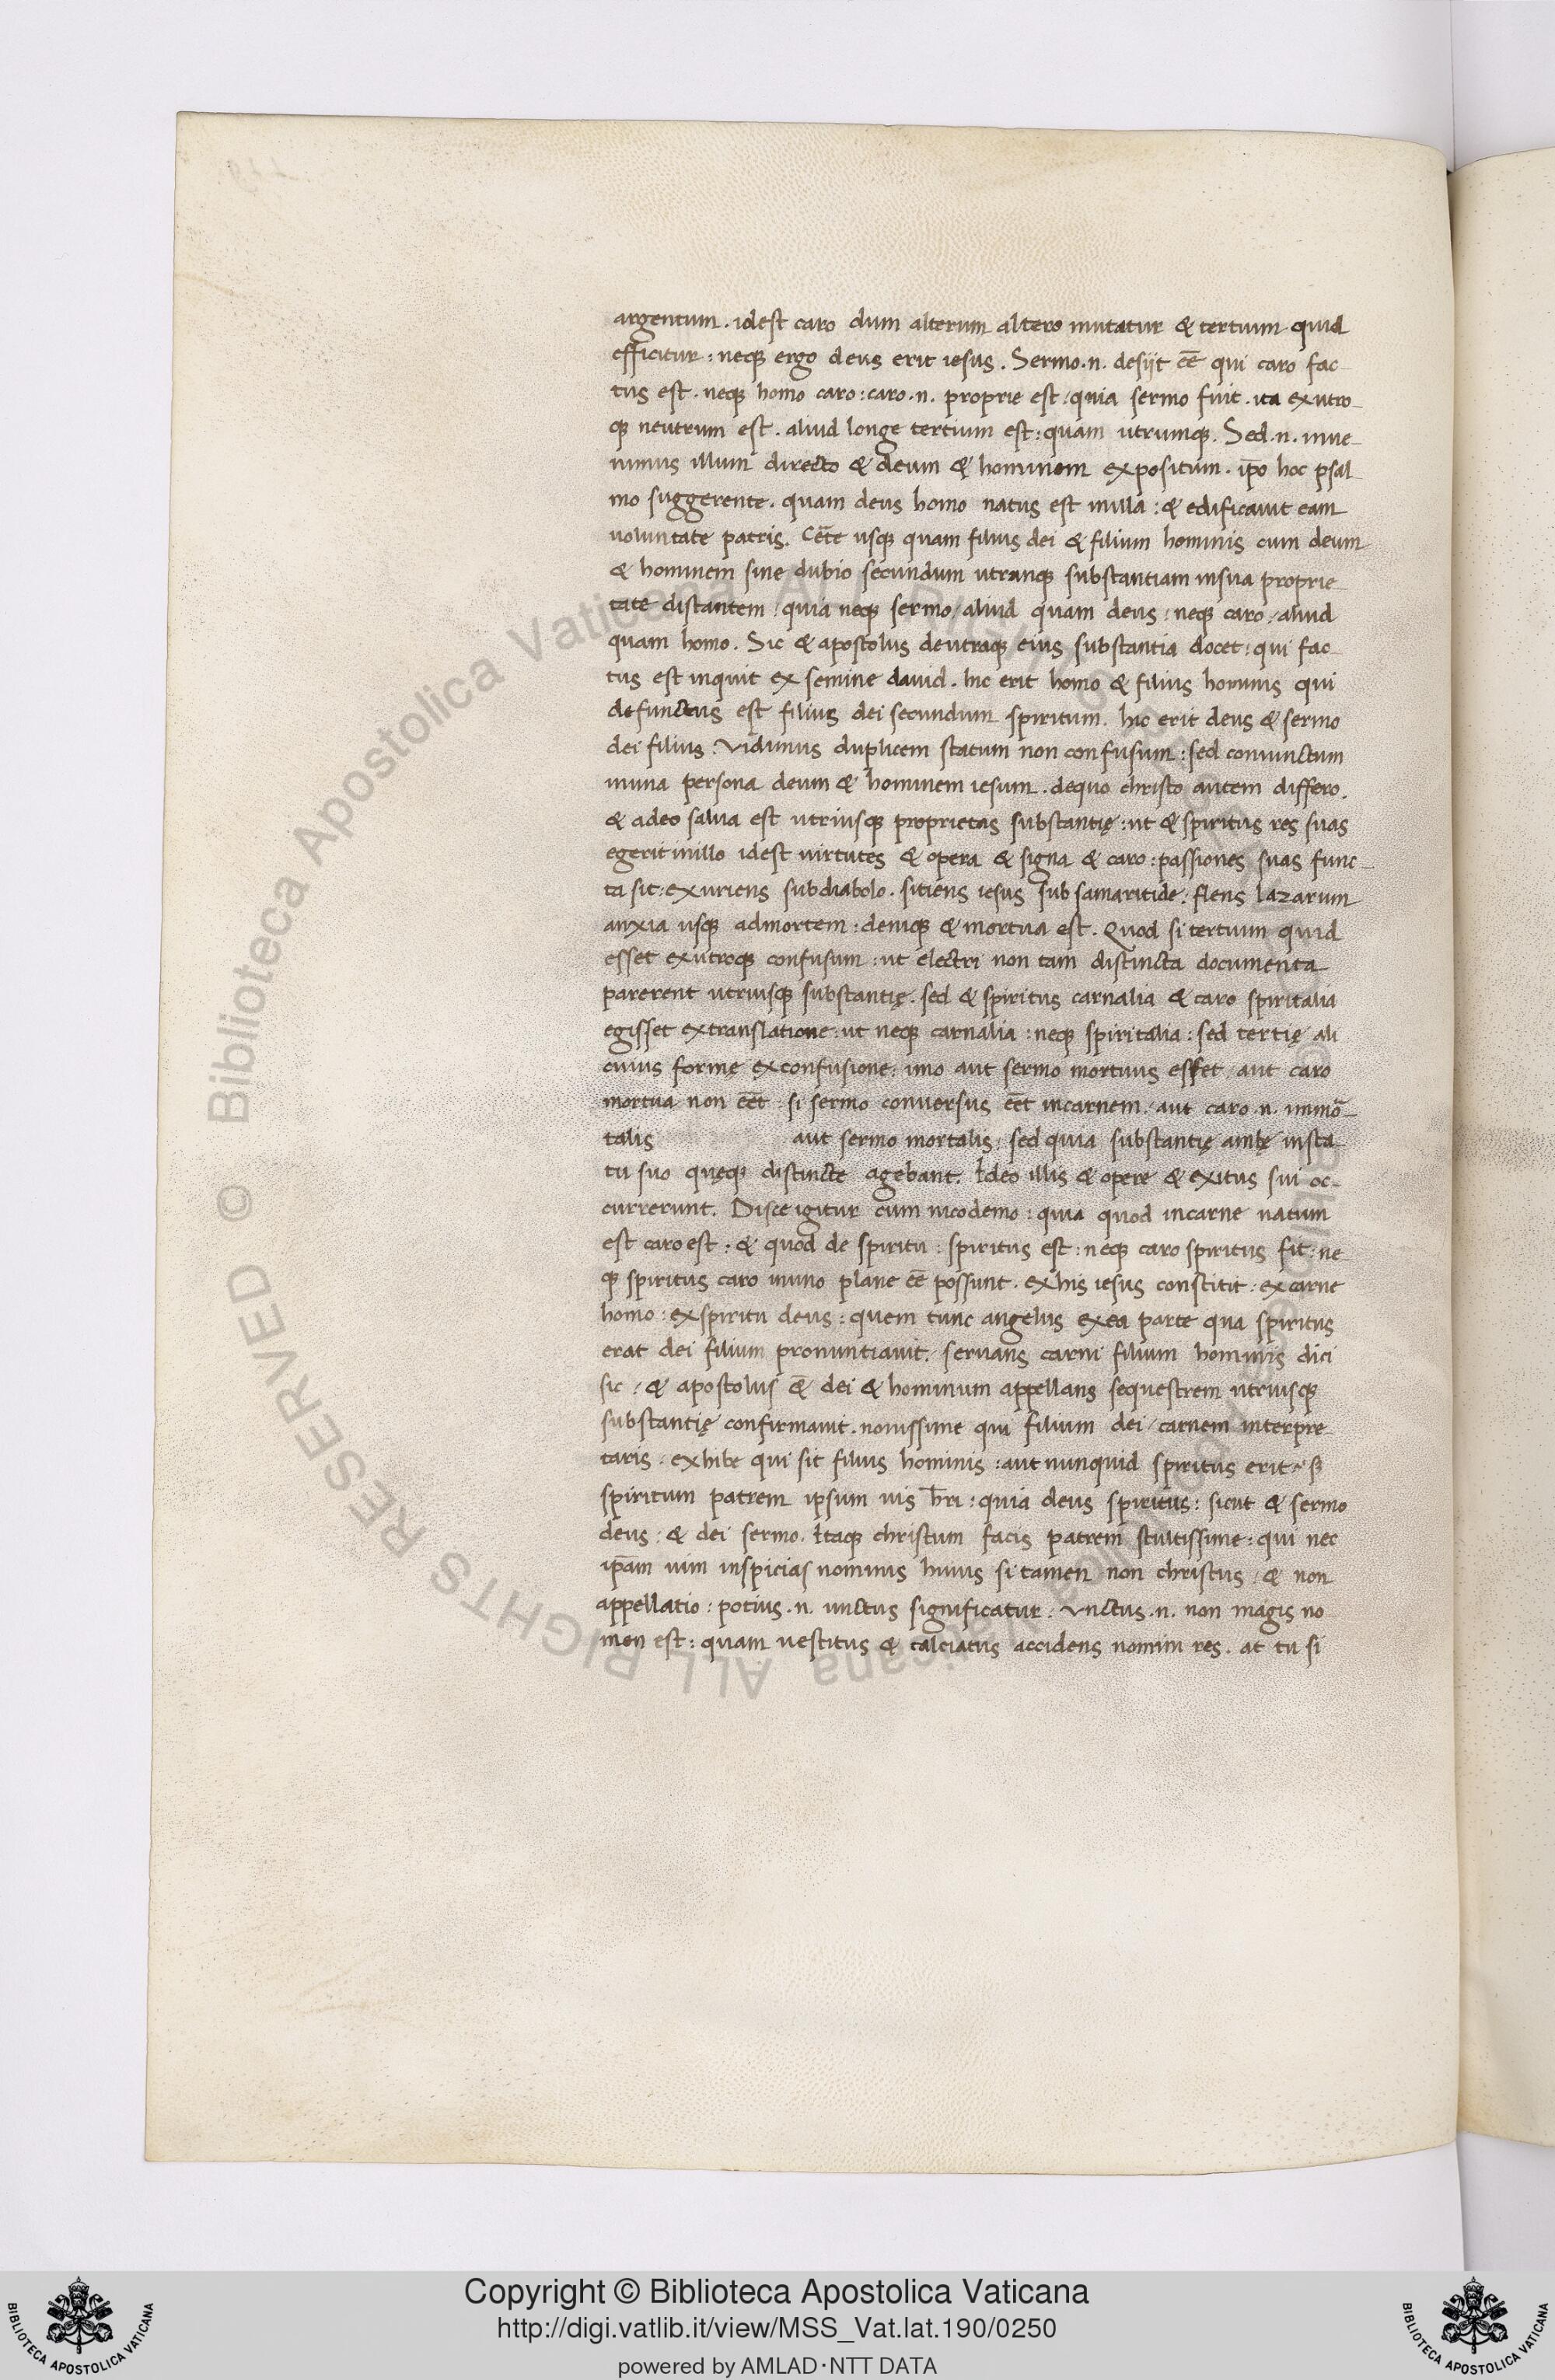 argentum. idest caro dum alterum altero mutatur & tertium quid
efficitur: neq; ergo deus erit iesus. Sermo .n. desijt eē qui caro fac-
tus est. neq; homo caro: caro .n. proprie est: quia sermo fuit. ita exutro-
q; neutrum est. aliud longe tertium est: quam utrumq;. Sed .n. inue-
nimus illum directo & deum & hominem expositum. ip̄o hoc psal-
mo suggerente. quam deus homo natus est inilla: & edificauit eam
uoluntate patris. Cēte usq; quam filius dei & filium hominis cum deum
& hominem sine dubio secundum utranq; substantiam insua proprie-
tate distantem: quia neq; sermo / aliud quam deus: neq; caro / aliud
quam homo. Sic & apostolus deutraq; eius substantia docet: qui fac-
tus est inquit ex semine dauid. hic erit homo & filius hominis qui
defunctus est filius dei secundum spiritum. hic erit deus & sermo
dei filius. Vidimus duplicem statum non confusum: sed coniunctum
inuna persona deum & hominem iesum. dequo christo autem differo.
& adeo salua est utriusq; proprietas substantię: ut & spiritus res suas
egerit inillo idest uirtutes & opera & signa & caro: passiones suas func-
ta sit: exuriens subdiabolo. sitiens iesus sub samaritide: flens lazarum
anxia usq; admortem: deniq; & mortua est. Quod si tertium quid
esset exutroq; confusum: ut electri non tam distincta documenta
parerent utriusq; substantię. sed & spiritus carnalia & caro spiritalia
egisset extranslatione: ut neq; carnalia: neq; spiritalia: sed tertię ali
cuius formę exconfusione: imo aut sermo mortuus esset / aut caro
mortua non eēt: si sermo conuersus eēt incarnem / aut caro .n. immō-
talis aut sermo mortalis: sed quia substantię ambę insta-
tu suo quęq; distincte agebant. Ideo illis & opere & exitus sui oc-
currerunt. Disce igitur cum nicodemo: quia quod incarne natum
est caro est: & quod de spiritu: spiritus est: neq; caro spiritus fit: ne
q; spiritus caro inuno plane eē possunt. exhis iesus constitit: excarne
homo: exspiritu deus: quem tunc angelus exea parte qua spiritus
erat dei filium pronuntiauit. seruans carni filium hominis dici
sic / & apostolus & dei & hominum appellans sequestrem utriusq;
substantię confirmauit. nouissime qui filium dei / carnem interpre-
taris. exhibe qui sit filius hominis: aut nunquid spiritus erit / s;
spiritum patrem ipsum uis h̄ri: quia deus spiritus: sicut & sermo
deus: & dei sermo. Itaq; christum facis patrem stultissime: qui nec
ip̄am uim inspicias nominis huius si tamen non christus / & non
appellatio: potius .n. unctus significatur. Vnctus .n. non magis no
men est: quam uestitus & calciatus accidens nomini res. at tu si
Copyright © Biblioteca Apostolica Vaticana
http://digi.vatlib.it/view/MSS_Vat.lat.190/0250
powered by AMLAD·NTT DATA